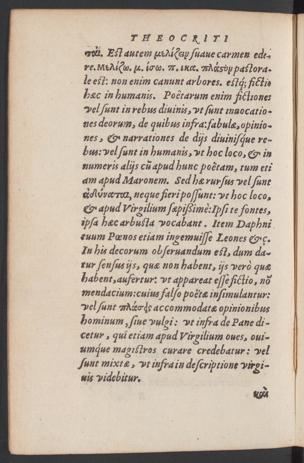 THEOCRITI
ται. Est autem μελίζων suaue carmen ede-
re. μελίζω. μ. ίσω. π. ικα. πλάσον pastora-
le est: non enim canunt arbores. estq́; fictio
hæc in humanis. Poëtarum enim fictiones
vel sunt in rebus diuinis, vt sunt inuocatio-
nes deorum, de quibus infra: fabulæ, opinio-
nes, & narrationes de dijs diuinisque re-
bus: vel sunt in humanis, vt hoc loco, & in
numeris alijs cũ apud hunc poëtam, tum eti
am apud Maronem. Sed hæ rursus vel sunt
ἀδύνατα, neque fieri possunt: vt hoc loco,
& apud Virgilium sæpissimè: Ipsi te fontes,
ipsa hæc arbusta vocabant. Item Daphni
tuum Pœnos etiam ingemuisse Leones &c.
In his decorum obseruandum est, dum da-
tur sensus ijs, quæ non habent, ijs verò quæ
habent, aufertur: vt appareat esse fictio, nō
mendacium: cuius falso poëtæ insimulantur:
vel sunt πλάσεις accommodatæ opinionibus
hominum, siue vulgi: vt infra de Pane di-
cetur, qui etiam apud Virgilium oues, oui-
umque magistros curare credebatur: vel
sunt mixtæ, vt infra in descriptione virgi-
nis videbitur.
καὶ